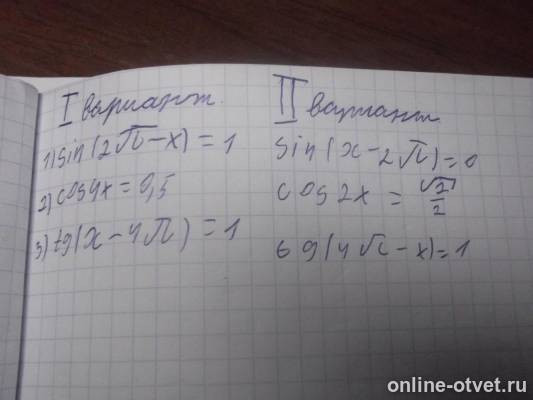 I вариант.
1) sin(2π-x)=1
2) cos4x=0,5
3) tg(x-4π)=1
II вариант
sin(x-2π)=0
cos2x=√2/2
tg(4π-x)=1
online-otvet.ru